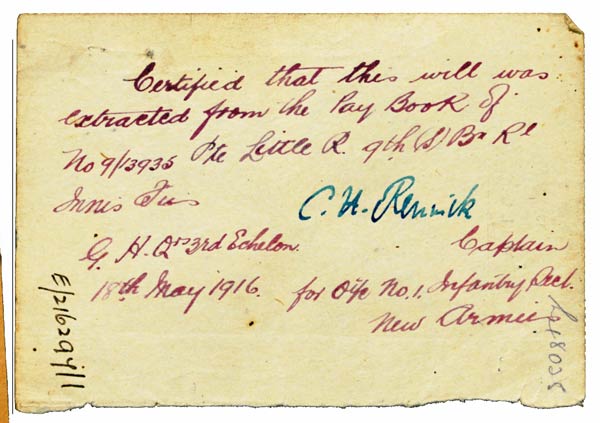 Certified that this will was
extracted from the Pay Book of
No 9/13935 Pte Little R. 9th (S) Bn Rl
Innis Fus
C. H. Rennick
G. H. Qrs 3rd Echelon. Captain
18th May 1916. for O i/c No. 1. Infantry Sect.
New Armies
E/216294/1